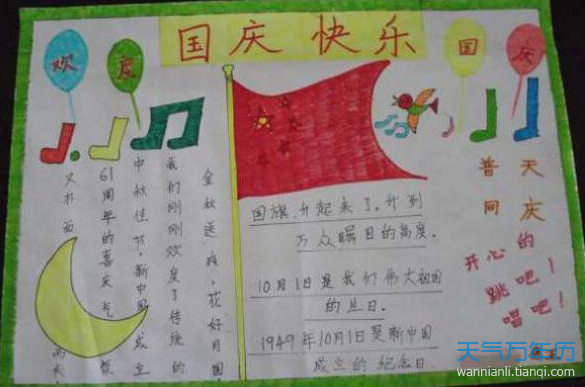 国庆 快乐
欢
度
国
庆
金秋送爽,花好月圆
我们刚刚欢度了传统的
中秋佳节,新中国成立
61周年的喜庆气
又扑面
国旗,升起来了,升到
万众瞩目的高度。
10月1日是我们伟大祖国
的生日.
1949年10月1日是新中国
成立的纪念日.
普天
同庆
开心的
跳吧!
唱吧!
天气万年历
wannianli.tianqi.com